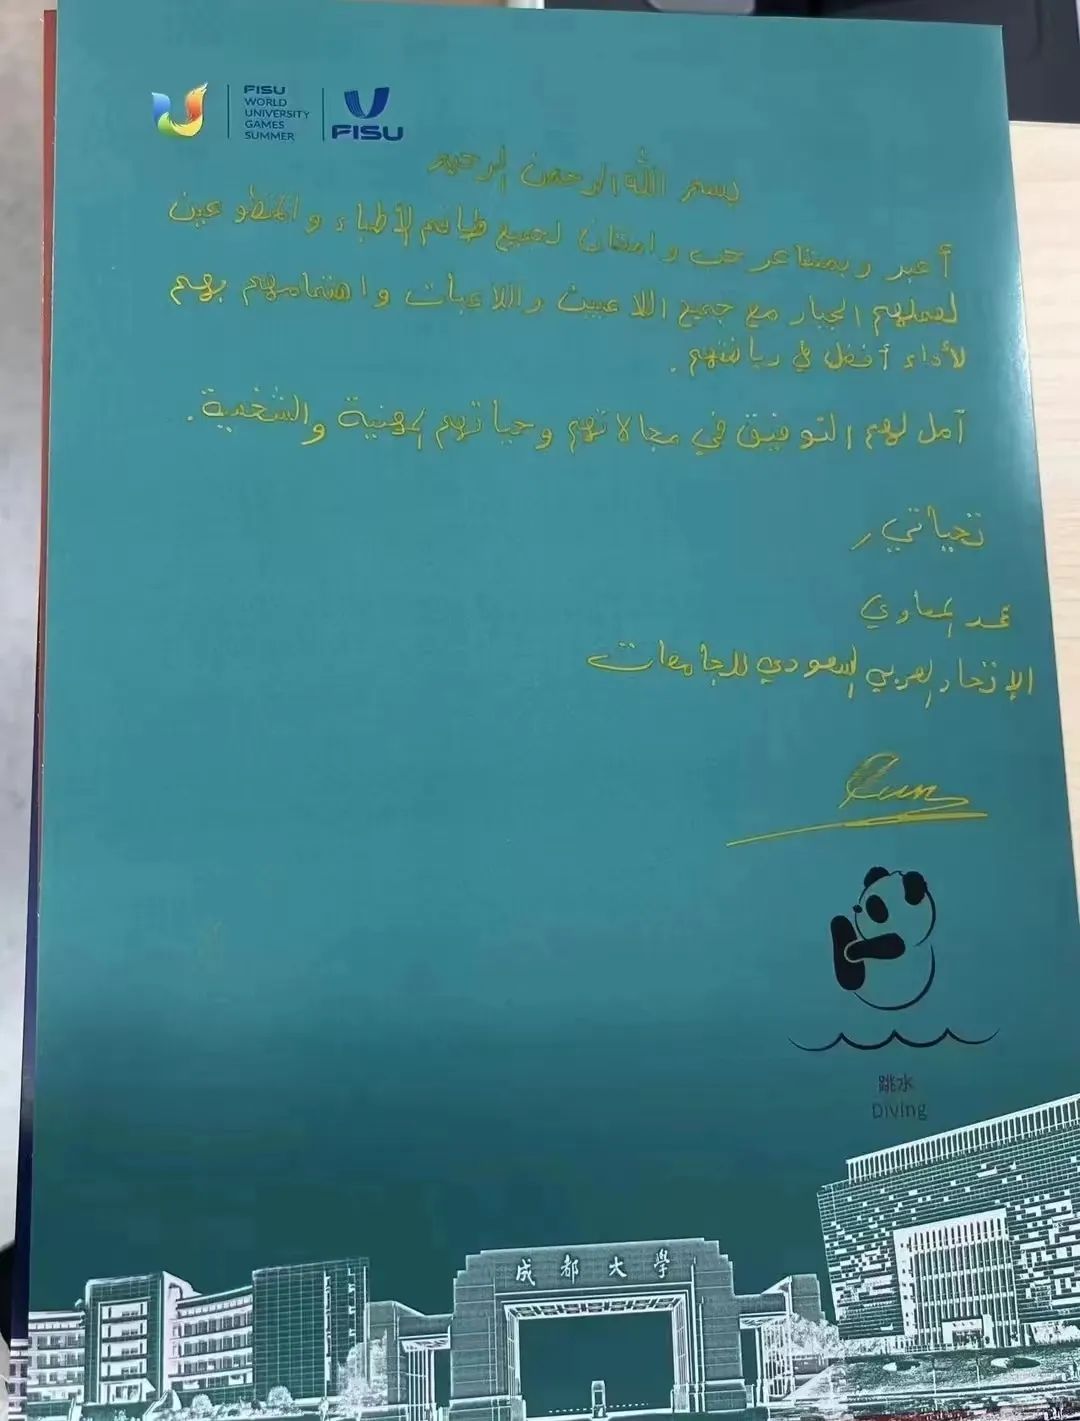 FISU
WORLD
UNIVERSITY
GAMES
SUMMER
FISU
بسم الله الرحمن الرحيم
أعبر وبمشاعر حب وامتنان لجميع طاقم الأطباء والمتطوعين
لعملهم الجبار مع جميع اللاعبين واللاعبات واهتمامهم بهم
لأداء أفضل في رياضتهم.
آمل لهم التوفيق في مجالاتهم وحياتهم المهنية والشخصية.
تحياتي،
محمد
الإتحاد العربي السعودي للجامعات
跳水
Diving
成都大学